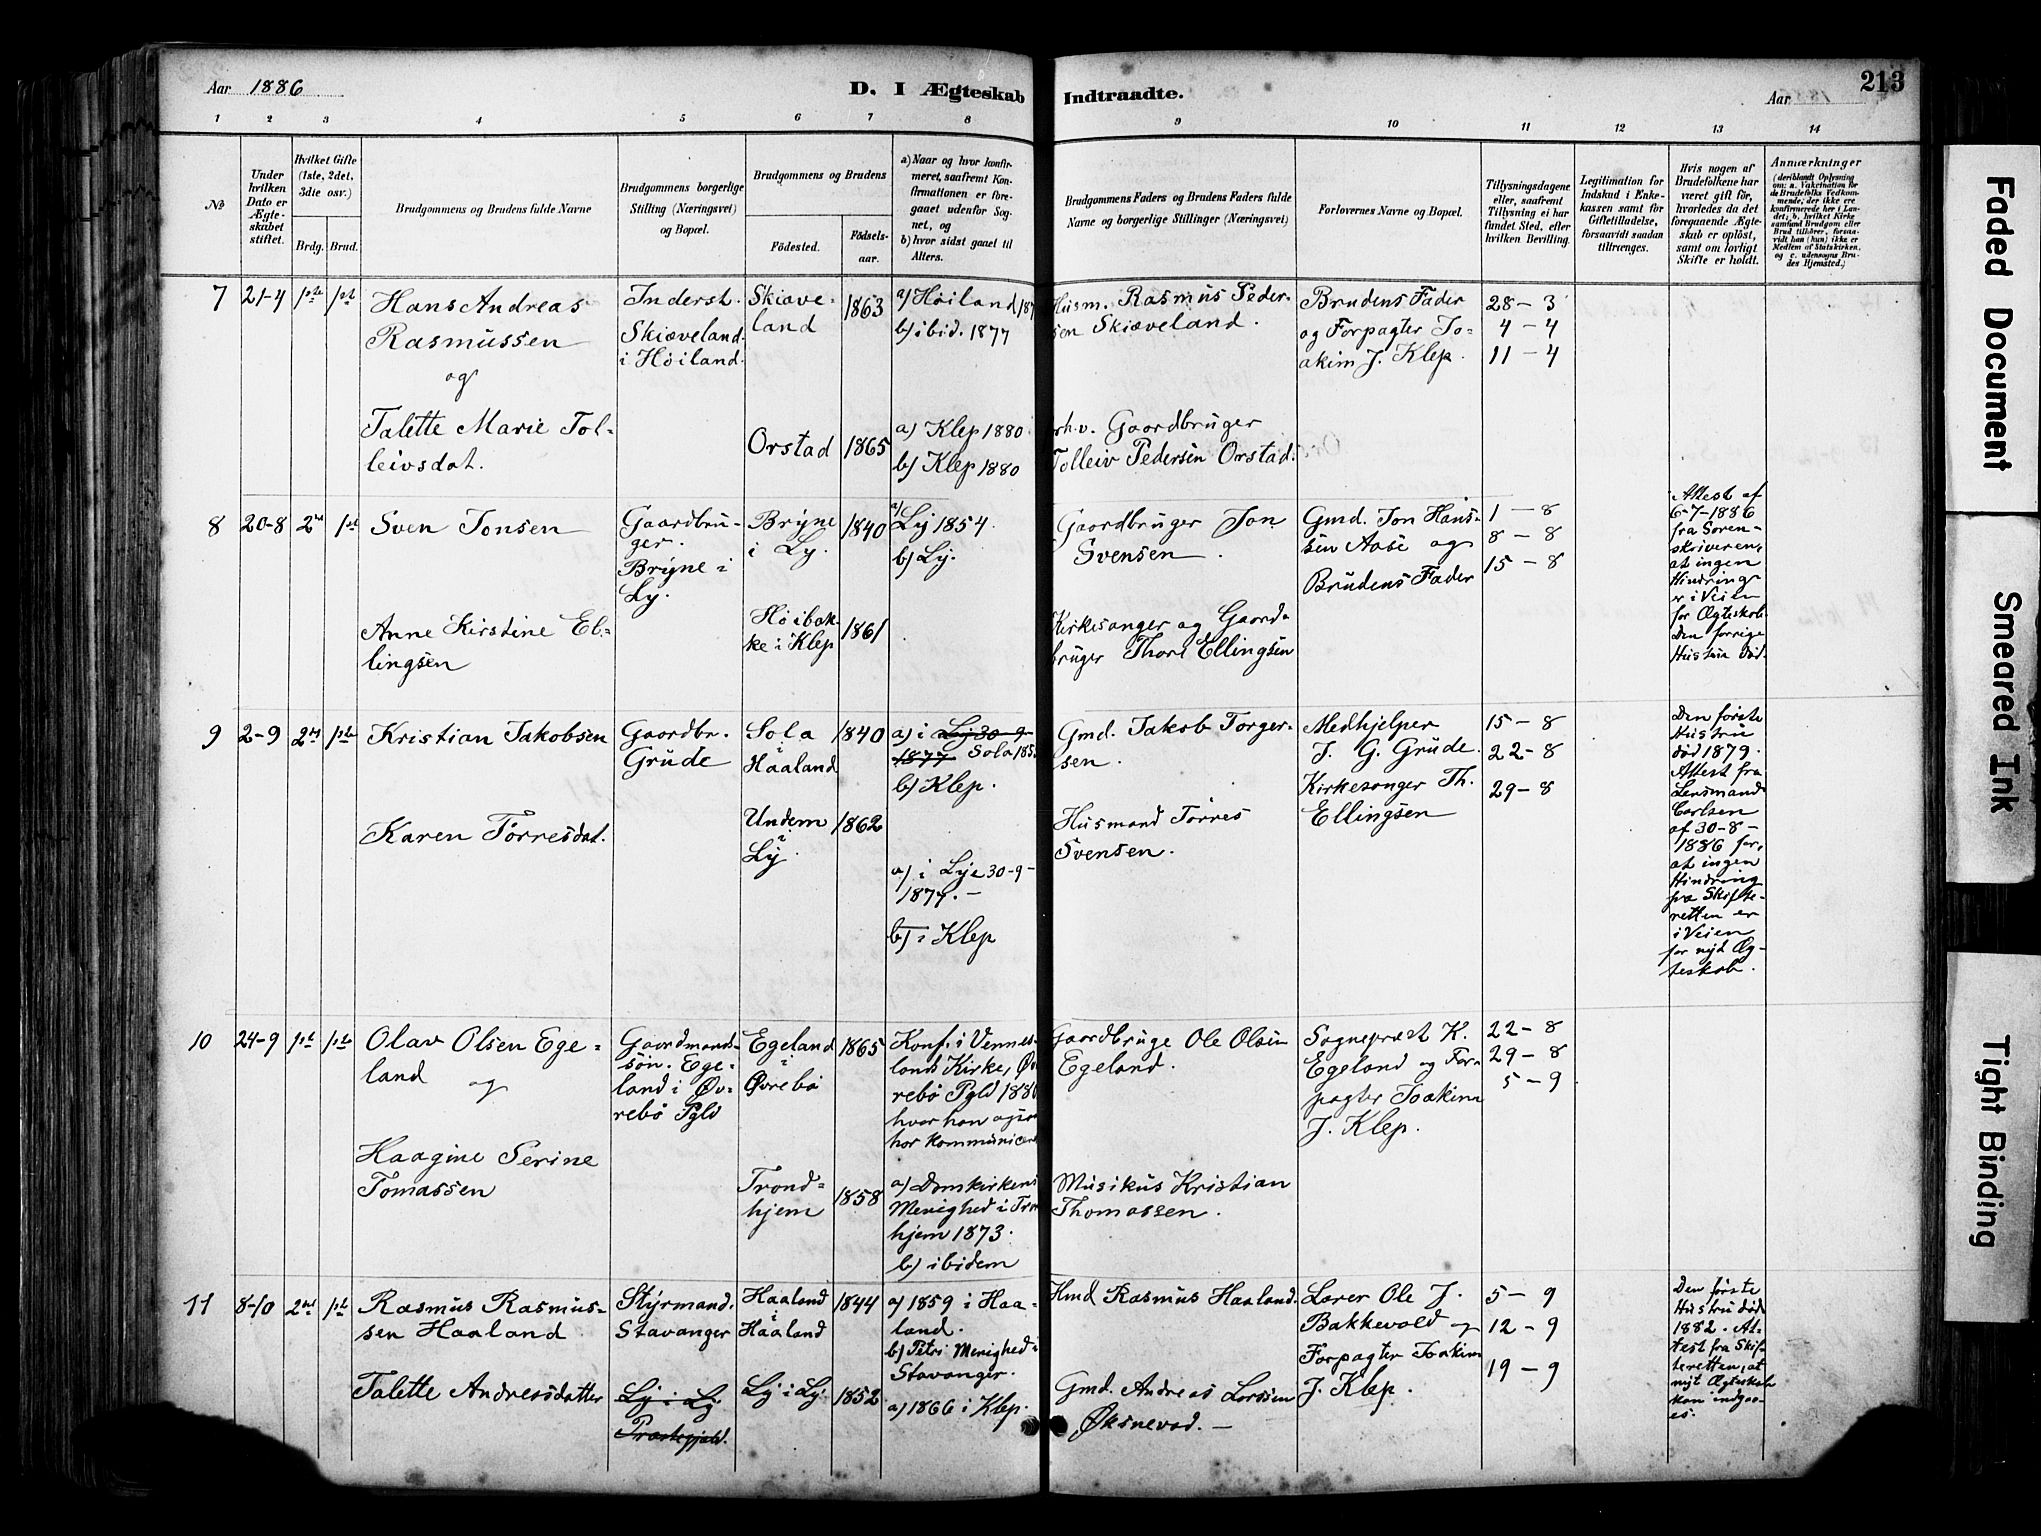 Aar 1886
D. I Ægteskab Indtraadte.
Aar
213
1 2 3 4 5 6 7 8 9 10 11 12 13 14
No
Under
hvilken
Dato er
Ægte-
skabet
stiftet.
Hvilket Gifte
(1ste, 2det,
3die osv.)
Brdg. Brud.
Brudgommens og Brudens fulde Navne
Brudgommens borgerlige
Stilling (Næringsvei)
og Bopæl.
Brudgommens og Brudens
Fødested.
Fødsels-
aar.
a) Naar og hvor konfir-
meret, saafremt Kon-
firmationen er fore-
gaaet udenfor Sog-
net, og
b) hvor sidst gaaet til
Alters.
Brudgommens Faders og Brudens Faders fulde
Navne og borgerlige Stillinger (Næringsvei)
Forlovernes Navne og Bopæl.
Tillysningsdagene
eller, saafremt
Tillysning ei har
fundet Sted, efter
hvilken Bevilling.
Legitimation for
Indskud i Enke-
kassen samt for
Giftetilladelse,
forsaavidt saadan
tiltrænges.
Hvis nogen af
Brudefolkene har
været gift før,
hvorledes da det
foregaaende Ægte-
skab er opløst,
samt om lovligt
Skifte er holdt.
Anmærkninger
(deriblandt Oplysning
om: a. Vakcination for
de Brudefolks Vedkom-
mende, der ikke ere
konfirmerede her i Lan-
det; b, hvilket Kirke
samfund Brudgom eller
Brud tilhører, forsaa-
vidt han (hun) ikke er
Medlem af Statskirken,
og c. udensogns Bru-
des Hjemsted.)
7 21-4 1ste 1st
Hans Andreas
Rasmussen
og
Talette Marie Tol-
leivsdat.
Inderst.
Skiæveland
i Høiland.
Skiæve-
land
1863
a) Høiland 187
b) ibid. 1877
Orstad
1865
a) Klep 1880
b) Klep 1880
Husm. Rasmus Peder-
sen Skiæveland.
Gaardbruger
Tolleiv Pedersen Orstad.
Brudens Fader
og Forpagter Jo-
akim J. Klep.
28-3
4-4
11-4
8 20-8 2den 1st
Sven Jonsen
Anne Kirstine El-
lingsen
Gaardbru-
ger.
Bryne i
Ly.
Bryne
i Ly.
1840
a) Ly 1854.
b) Ly.
Høibak-
ke i Klep
1861
Gaardbruger Jon
Svensen.
Kirkesanger og Gaard-
bruger Thore Ellingsen
Gmd. Jon Hans-
sen Aase og
Brudens Fader
1-8
8-8
15-8
Attest af
6-7-1886
fra Soren-
skriveren,
at ingen
Hindring
er i Veien
for Ægteskab.
Den forrige
Hustru død.
9 2-9 2den 1ste
Kristian Jakobsen
Karen Tørresdat.
Gaardbr.
Grude
Sola
i
Haaland
1840
a) i Ly 30-9-
1877 Sola 185
b) Klep.
Undem
i
Ly.
1862
a) i Lye 30-9-
1877.-
b) i Klep
Gmd. Jakob Torger-
sen.
Husmand Tørres
Svensen.
Medhjelper
J. G. Grude.
Kirkesanger Th.
Ellingsen
15-8
22-8
29-8
Den første
Hustru
død 1879.
Attest fra
Lensmand
Carlsen
af 30-8-
1886 for,
at ingen
Hindring
fra Skifte-
retten er
i Veien
for nyt Æg-
teskab.
10 24-9 1st 1ste
Olav Olsen Ege-
land
og
Haagine Serine
Tomassen
Gaardmands-
søn. Ege-
land i Øv-
rebø Pgld
Egeland
i
Øvrebø
1865
Konf. i Vennes-
lands Kirke, Øv
rebø Pgld 188
hvor han ogsaa
har kommunicert
Trond-
hjem
1858
a) Domkirkens
Menighed i Tron
hjem 1873.
b) ibidem
Gaardbruge Ole Olsen
Egeland.
Musikus Kristian
Thomassen.
Sogneprest K.
Egeland og For-
pagter Joakim
J. Klep.
22-8
29-8
5-9
11 8-10 2den 1ste
Rasmus Rasmus-
sen Haaland
Talette Andreasdatter
Styrmand.
Stavanger
Ly i Ly
Præstegjæld.
Haaland
i
Haaland
1844
a) 1859 i Haa-
land.
b) Petri Menighed i
Stavanger.
Ly i Ly.
1852
a) 1866 i Klep.
Hmd Rasmus Haaland.
Gmd. Andreas Larssen
Øksnevad.-
Lærer Ole J.
Bakkevold og
Forpagter Joakim
J. Klep.
5-9
12-9
19-9
Den første
Hustru død
1882. At-
test fra Skif-
teretten, at
nyt Ægteskab
kan indgaa-
es.
Faded Document
Smeared Ink
Tight Binding